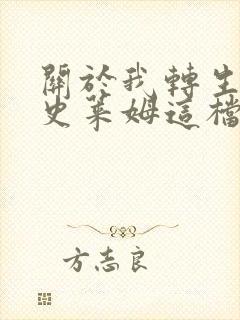 關於我轉生
史萊姆這檔
方志良